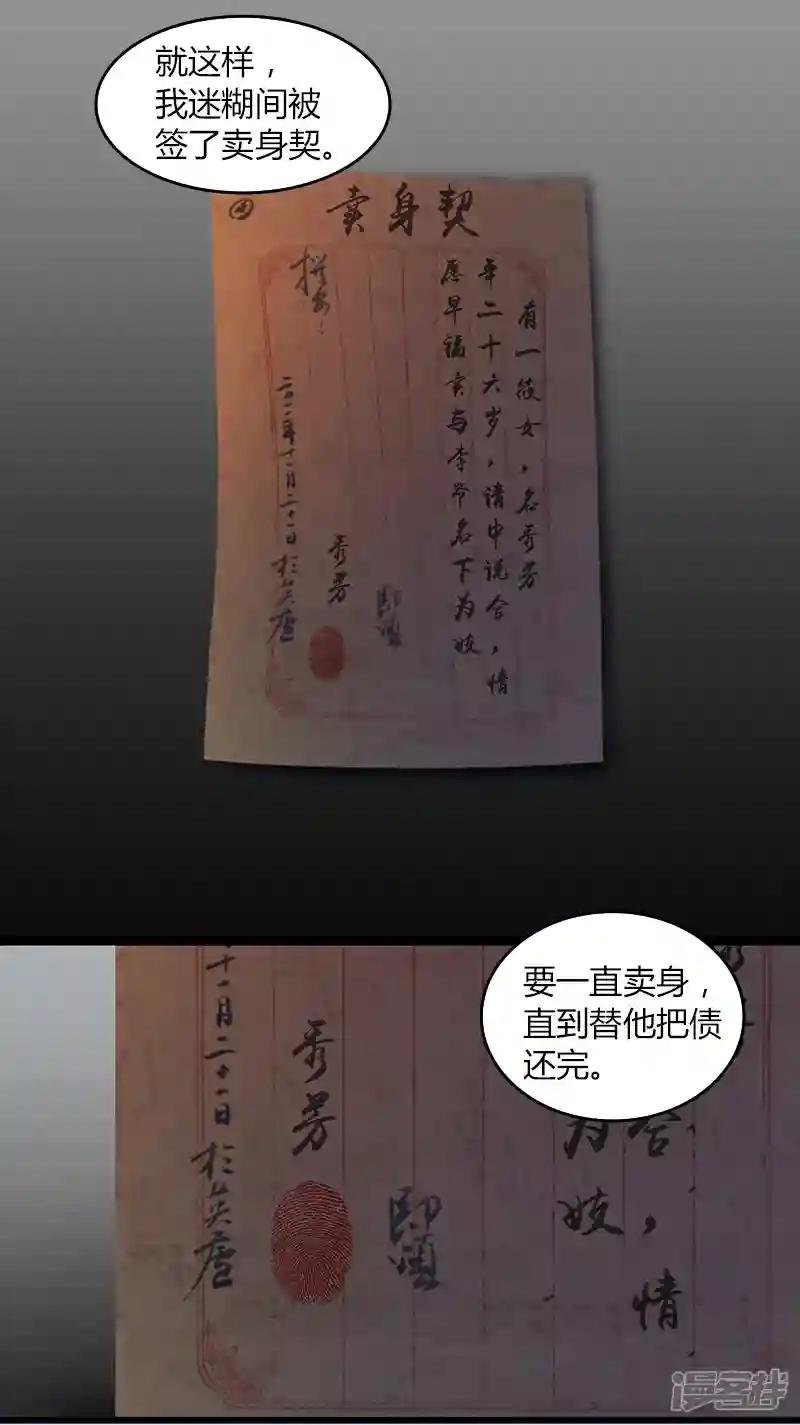 就这样，
我迷糊间被
签了卖身契。
卖身契
有一彼女，名秀芳
年二十六岁，请中说合，情
愿早福卖与李爷名下为妓
秀芳
二〇一一年十一月二十一日
要一直卖身，
直到替他把债
还完。
为 合
妓，情
秀芳
十一月二十一日
漫客栈